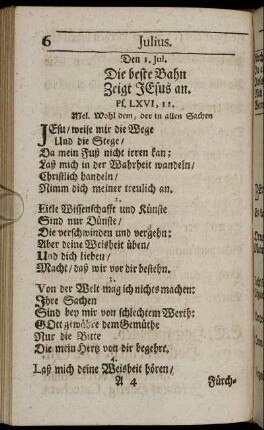 6 Julius.
Den 1. Jul.
Die beste Bahn
Zeigt JEsus an.
Ps. LXVI, 11.
Mel. Wohl dem, der in allen Sachen
JEsu/ weise mir die Wege
Und die Stege/
Da mein Fuß nicht irren kan:
Laß mich in der Wahrheit wandeln/
Christlich handeln/
Nimm dich meiner treulich an.
2.
Eitle Wissenschafft und Künste
Sind nur Dünste/
Die verschwinden und vergehn:
Aber deine Weisheit üben/
Und dich lieben/
Macht/ daß wir vor dir bestehn.
3.
Von der Welt mag ich nichts machen:
Ihre Sachen
Sind bey mir von schlechtem Werth:
GOtt gewähre dem Gemüthe
Nur die Bitte
Die mein Hertz von dir begehrt.
4.
Laß mich deine Weisheit hören/
A 4 Fürch-